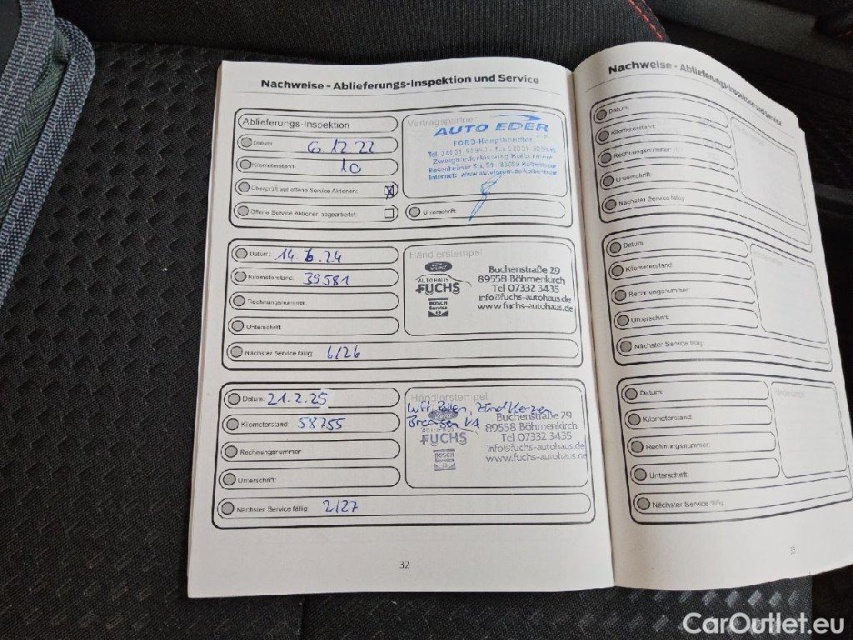 Nachweise - Ablieferungs-Inspektion und Service
Ablieferungs-Inspektion
Datum: 6.12.22
Kilometerstand: 10
Überprüft auf offene Service Aktionen:
Offene Service Aktionen abgearbeitet:
Vertragspartner
AUTO EDER
FORD-Haupthändler
Unterschrift
Datum: 14.6.24
Kilometerstand: 39581
Rechnungsnummer
Unterschrift
Nächster Service fällig: 6/26
Händlerstempel
Ford
AUTOHAUS
FUCHS
BOSCH
Service
Buchenstraße 29
89558 Böhmenkirch
Tel 07332 3435
info@fuchs-autohaus.de
www.fuchs-autohaus.de
Datum: 21.2.25
Kilometerstand: 58755
Rechnungsnummer
Unterschrift:
Nächster Service fällig: 2/27
Händlerstempel
Zündkerzen
Bremsen
FUCHS
BOSCH
Buchenstraße 29
89558 Böhmenkirch
Tel 07332 3435
info@fuchs-autohaus.de
www.fuchs-autohaus.de
32
Nachweise - Ablieferungs-Inspektion und Service
Datum:
Kilometerstand:
Rechnungsnummer:
Unterschrift:
Nächster Service fällig
Datum:
Kilometerstand
Rechnungsnummer
Unterschrift:
Nächster Service fällig
Datum:
Kilometerstand:
Rechnungsnummer:
Unterschrift:
Nächster Service fällig
CarOutlet.eu